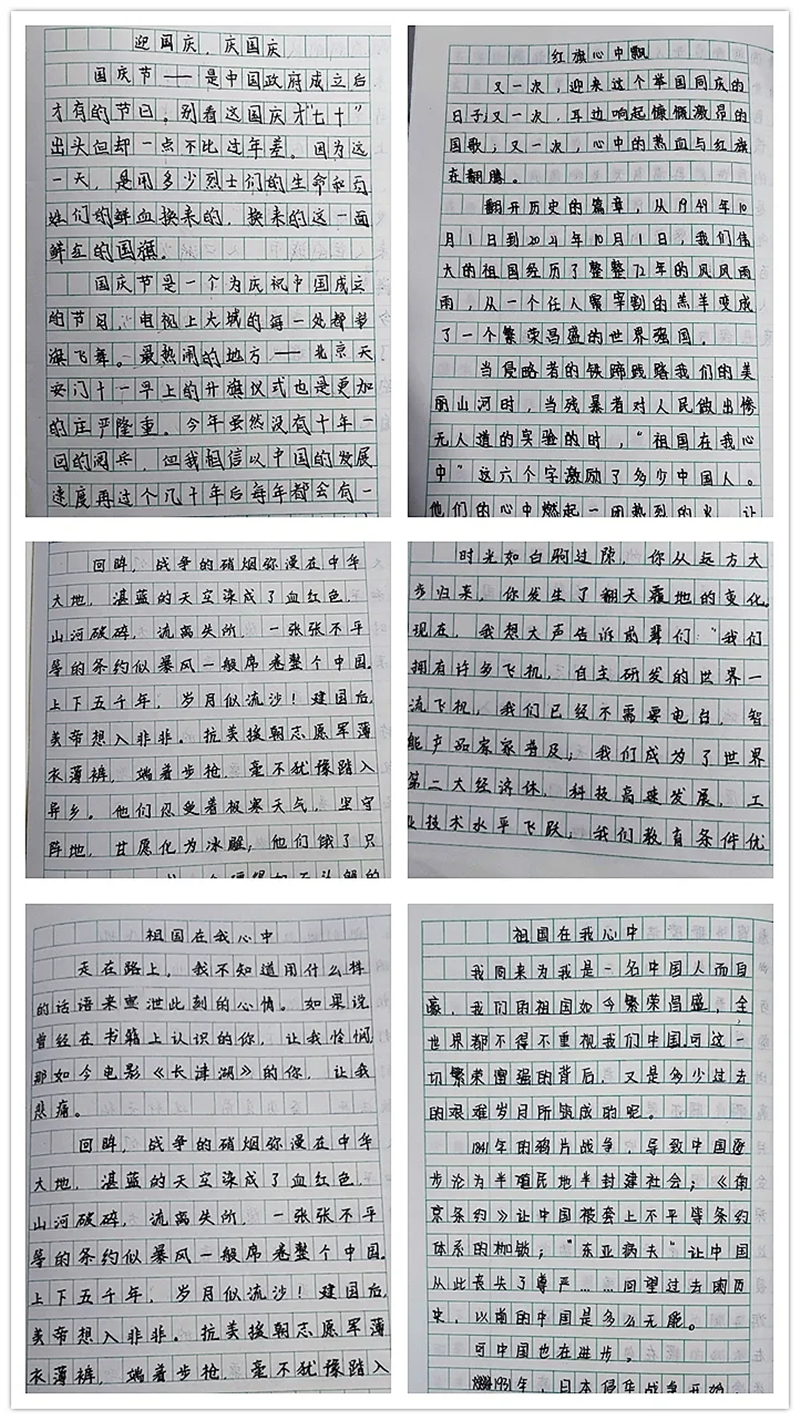 迎国庆，庆国庆
国庆节——是中国政府成立后
才有的节日。别看这国庆才“七十”
出头但却一点不比过年差。因为这
一天，是用多少烈士们的生命和
她们的鲜血换来的，换来的这一面
鲜红的国旗。
国庆节是一个为庆祝中国成立
的节日，电视上大城的每一处都彩
旗飞舞。最热闹的地方——北京天
安门十一早上的升旗仪式也是更加
的庄严隆重。今年虽然没有十年一
回的阅兵，但我相信以中国的发展
速度再过个几十年后每年都会有一
红旗心中飘
又一次，迎来这个举国同庆的
日子；又一次，耳边响起慷慨激昂的
国歌；又一次，心中的热血与红旗
在翻腾。
翻开历史的篇章，从1949年10
月1日到2021年10月1日，我们伟
大的祖国经历了整整72年的风风雨
雨，从一个任人宰割的羔羊变成
了一个繁荣昌盛的世界强国。
当侵略者的铁蹄践踏我们的美
丽山河时，当残暴者对人民做出惨
无人道的实验的时，“祖国在我心
中”这六个字激励了多少中国人。
他们的心中燃起一团热烈的火，让
回眸，战争的硝烟弥漫在中华
大地，湛蓝的天空染成了血红色，
山河破碎，流离失所，一张张不平
等的条约似暴风一般席卷整个中国。
上下五千年，岁月似流沙！建国后，
美帝想入非非。抗美援朝志愿军薄
衣薄裤，端着步枪，毫不犹豫踏入
异乡。他们忍受着极寒天气，坚守
阵地，甘愿化为冰雕；他们饿了只
时光如白驹过隙，你从远方大
步归来，你发生了翻天覆地的变化。
现在，我想大声告诉前辈们：“我们
拥有许多飞机，自主研发的世界一
流飞机，我们已经不需要电台，智
能产品家家普及；我们成为了世界
第二大经济体，科技高速发展，工
业技术水平飞跃；我们教育条件优
祖国在我心中
走在路上，我不知道用什么样
的话语来宣泄此刻的心情。如果说
曾经在书籍上认识的你，让我怜悯
那如今电影《长津湖》的你，让我
悲痛。
回眸，战争的硝烟弥漫在中华
大地，湛蓝的天空染成了血红色，
山河破碎，流离失所，一张张不平
等的条约似暴风一般席卷整个中国。
上下五千年，岁月似流沙！建国后，
美帝想入非非。抗美援朝志愿军薄
衣薄裤，端着步枪，毫不犹豫踏入
祖国在我心中
我向来为我是一名中国人而自
豪，我们的祖国如今繁荣昌盛，全
世界都不得不重视我们中国，可这一
切繁荣富强的背后，又是多少过去
的艰难岁月所筑成的呢。
1841年的鸦片战争，导致中国逐
步沦为半殖民地半封建社会；《南
京条约》让中国被套上不平等条约
体系的枷锁；“东亚病夫”让中国
从此丧失了尊严……回望过去的历
史，以前的中国是多么无能。
可中国也在进步，
1931年，日本侵华战争开始